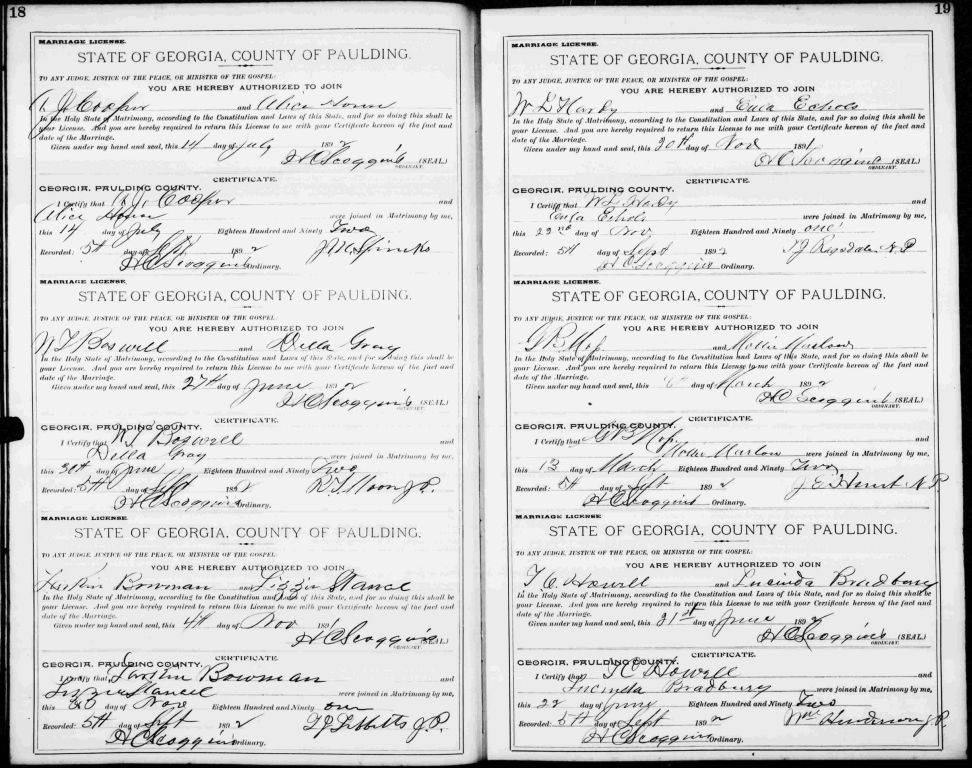 18
MARRIAGE LICENSE.
STATE OF GEORGIA, COUNTY OF PAULDING.
TO ANY JUDGE, JUSTICE OF THE PEACE, OR MINISTER OF THE GOSPEL:
YOU ARE HEREBY AUTHORIZED TO JOIN
J. Cooper and Alice
In the Holy State of Matrimony, according to the Constitution and Laws of this State, and for so doing this shall be
your License. And you are hereby required to return this License to me with your Certificate hereon of the fact and
date of the Marriage.
Given under my hand and seal, this 14 day of July 1892
H C Scoggins (SEAL)
ORDINARY.
CERTIFICATE.
GEORGIA, PAULDING COUNTY.
I Certify that J. Cooper and
Alice were joined in Matrimony by me,
this 14 day of July Eighteen Hundred and Ninety Two
Recorded: 5th day of Sept 1892 Spinks
H C Scoggins Ordinary.
MARRIAGE LICENSE.
STATE OF GEORGIA, COUNTY OF PAULDING.
TO ANY JUDGE, JUSTICE OF THE PEACE, OR MINISTER OF THE GOSPEL:
YOU ARE HEREBY AUTHORIZED TO JOIN
Boswell and Della Gray
In the Holy State of Matrimony, according to the Constitution and Laws of this State, and for so doing this shall be
your License. And you are hereby required to return this License to me with your Certificate hereon of the fact and
date of the Marriage.
Given under my hand and seal, this 27th day of June 1892
H C Scoggins (SEAL)
ORDINARY.
CERTIFICATE.
GEORGIA, PAULDING COUNTY.
I Certify that Boswell and
Della Gray were joined in Matrimony by me,
this 30th day of June Eighteen Hundred and Ninety Two
Recorded: 5th day of Sept 1892 R. T. Moon J.P.
H C Scoggins Ordinary.
MARRIAGE LICENSE.
STATE OF GEORGIA, COUNTY OF PAULDING.
TO ANY JUDGE, JUSTICE OF THE PEACE, OR MINISTER OF THE GOSPEL:
YOU ARE HEREBY AUTHORIZED TO JOIN
Bowman and Lizzie
In the Holy State of Matrimony, according to the Constitution and Laws of this State, and for so doing this shall be
your License. And you are hereby required to return this License to me with your Certificate hereon of the fact and
date of the Marriage.
Given under my hand and seal, this 4th day of Nov 1891
H C Scoggins (SEAL)
ORDINARY.
CERTIFICATE.
GEORGIA, PAULDING COUNTY.
I Certify that Bowman and
were joined in Matrimony by me,
this day of Nov Eighteen Hundred and Ninety one
Recorded: 5th day of Sept 1892 Tibbitts J.P.
H C Scoggins Ordinary.
19
MARRIAGE LICENSE.
STATE OF GEORGIA, COUNTY OF PAULDING.
TO ANY JUDGE, JUSTICE OF THE PEACE, OR MINISTER OF THE GOSPEL:
YOU ARE HEREBY AUTHORIZED TO JOIN
W L Hardy and Echols
In the Holy State of Matrimony, according to the Constitution and Laws of this State, and for so doing this shall be
your License. And you are hereby required to return this License to me with your Certificate hereon of the fact and
date of the Marriage.
Given under my hand and seal, this 20th day of Nov 1891
H C Scoggins (SEAL)
ORDINARY.
CERTIFICATE.
GEORGIA, PAULDING COUNTY.
I Certify that W L Hardy and
Echols were joined in Matrimony by me,
this 22nd day of Nov Eighteen Hundred and Ninety one
Recorded: 5th day of Sept 1892 Ragsdale N.P
H C Scoggins Ordinary.
MARRIAGE LICENSE.
STATE OF GEORGIA, COUNTY OF PAULDING.
TO ANY JUDGE, JUSTICE OF THE PEACE, OR MINISTER OF THE GOSPEL:
YOU ARE HEREBY AUTHORIZED TO JOIN
G B and Mollie Marlow
In the Holy State of Matrimony, according to the Constitution and Laws of this State, and for so doing this shall be
your License. And you are hereby required to return this License to me with your Certificate hereon of the fact and
date of the Marriage.
Given under my hand and seal, this day of March 1892
H C Scoggins (SEAL)
ORDINARY.
CERTIFICATE.
GEORGIA, PAULDING COUNTY.
I Certify that G B and
Mollie Marlow were joined in Matrimony by me,
this 13 day of March Eighteen Hundred and Ninety Two
Recorded: 5th day of Sept 1892 N P
H C Scoggins Ordinary.
MARRIAGE LICENSE.
STATE OF GEORGIA, COUNTY OF PAULDING.
TO ANY JUDGE, JUSTICE OF THE PEACE, OR MINISTER OF THE GOSPEL:
YOU ARE HEREBY AUTHORIZED TO JOIN
T C Howell and Lucinda Bradbury
In the Holy State of Matrimony, according to the Constitution and Laws of this State, and for so doing this shall be
your License. And you are hereby required to return this License to me with your Certificate hereon of the fact and
date of the Marriage.
Given under my hand and seal, this 21st day of June 1892
H C Scoggins (SEAL)
ORDINARY.
CERTIFICATE.
GEORGIA, PAULDING COUNTY.
I Certify that T C Howell and
Lucinda Bradbury were joined in Matrimony by me,
this 22 day of June Eighteen Hundred and Ninety Two
Recorded: 5th day of Sept 1892 Wm Henderson J P
H C Scoggins Ordinary.